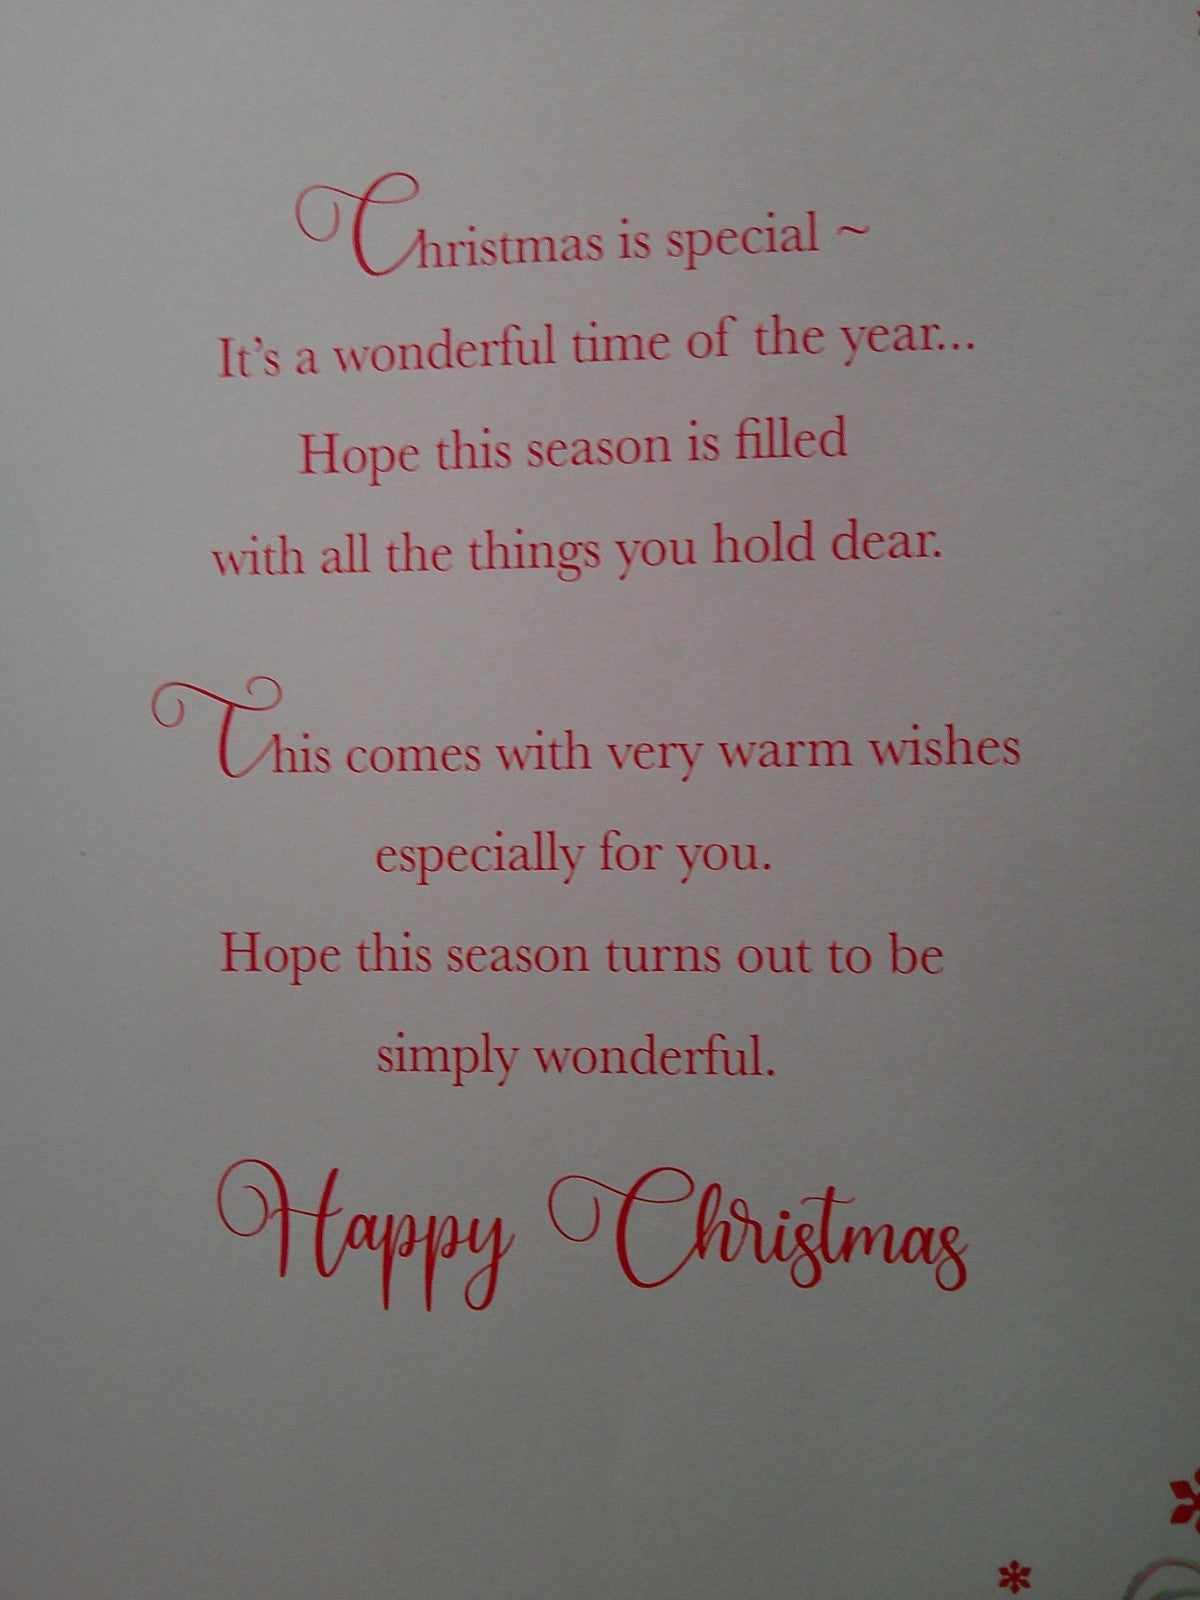 Christmas is special ~
It's a wonderful time of the year...
Hope this season is filled
with all the things you hold dear.
This comes with very warm wishes
especially for you.
Hope this season turns out to be
simply wonderful.
Happy Christmas